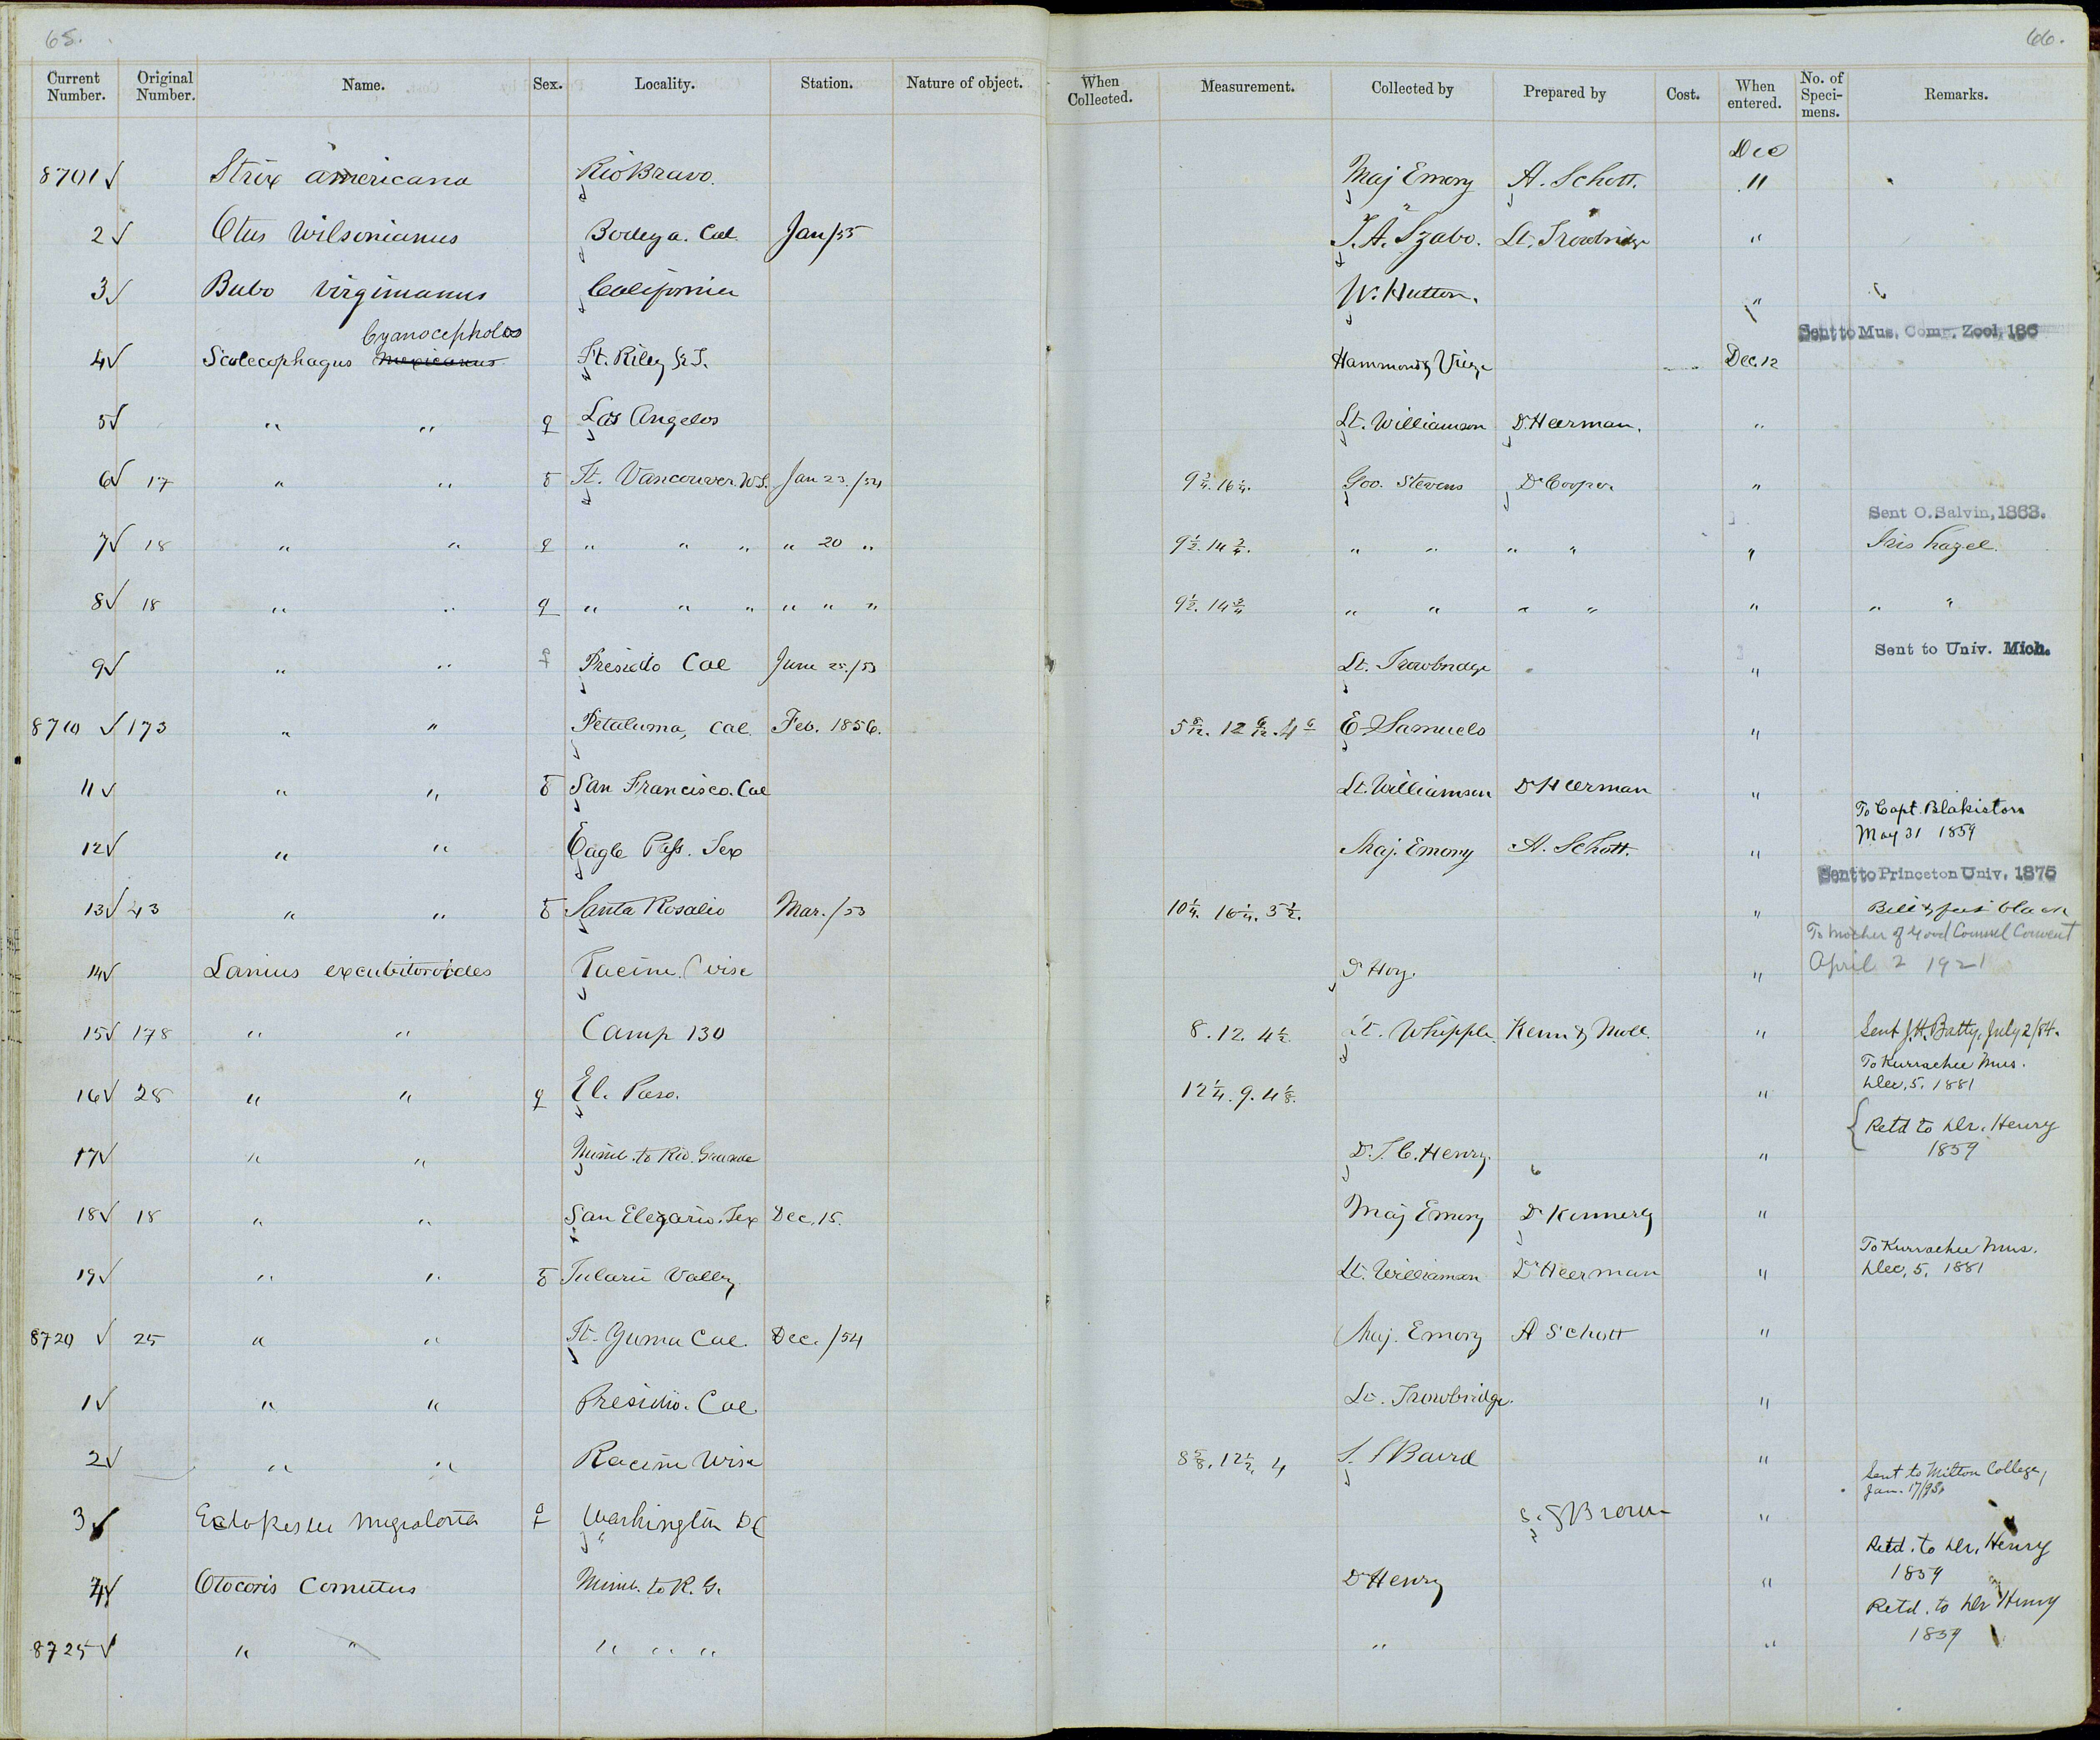 65.
66.
Current Number. Original Number. Name. Sex. Locality. Station. Nature of object. When Collected. Measurement. Collected by Prepared by Cost. When entered. No. of Speci-mens. Remarks.
Dec
8701 √ Strix americana Rio Bravo. Maj Emory A. Schott. 11
2 √ Otus Wilsonianus Bodega. Cal. Jan/55 T. A. Szabo. Lt. Trowbridge "
3 √ Bubo Virginianus California W. Hutton. "
Cyanocephalus
Sent to Mus. Comp. Zool, 186
4 √ Scolecophagus Mexicanus Ft. Riley K.T. Hammond & Dec. 12
5 √ " " ♀ Los Angelos Lt. Williamson Dr Heerman. "
6 √ 17 " " ♂ Ft. Vancouver. W.T. Jan 23./54 9 3/4. 16 1/4. Gov. Stevens Dr Cooper "
Sent O. Salvin, 1863.
7 √ 18 " " ♀ " " " " 20 " 9 1/2. 14 3/4. " " " " " Iris hazel.
8 √ 18 " " ♀ " " " " " " 9 1/2. 14 3/4 " " " " " " "
Sent to Univ. Mich.
9 √ " " ♀ Presidio Cal June 25./53 Lt. Trowbridge "
8710 √ 173 " " Petaluma, Cal. Feb. 1856. 5 8/12. 12 6/12. 4 E Samuels "
11 √ " " ♂ San Francisco. Cal Lt. Williamson Dr Heerman "
To Capt. Blakiston
May 31 1859
12 √ " " Eagle Pass. Tex Maj. Emory A. Schott. "
Sent to Princeton Univ. 1875
13 √ 43 " " ♂ Santa Rosalio Mar./53 10 1/4. 16 1/4. 3 1/2. " Bill & feet black
To Mother of Good Counsel Convent
April 2 1921
14 √ Lanius excubitoroides Racine. Wisc Dr Hoy. "
15 √ 178 " " Camp 130 8. 12. 4 1/2. Lt. Whipple. Kenn & Moll. " Sent J.H. Batty, July 2/84.
To Kurrachee Mus.
Dec, 5, 1881
16 √ 28 " " ♀ El. Paso. 12 1/4. 9. 4 1/8. "
Retd to Dr. Henry
1859
17 √ " " Mimb. to Rio. Grande Dr. T. C. Henry. "
18 √ 18 " " San Elezario. Tex Dec, 15. Maj Emory Dr Kennerly "
To Kurrachee Mus.
Dec, 5, 1881
19 √ " " ♂ Tulare Valley Lt. Williamson Dr Heerman "
8720 √ 25 " " Ft. Yuma Cal. Dec./54 Maj. Emory A Schott "
1 √ " " Presidio. Cal Lt. Trowbridge. "
2 √ " " Racine Wisc 8 5/8. 12 1/2. 4 S. F Baird "
Sent to Milton College,
Jan. 17/95.
3 √ Ectopistes migratoria ♀ Washington DC "
Retd. to Dr. Henry
1859
4 √ Otocoris Cornutus Mimb. to R. G. Dr Henry "
Retd. to Dr Henry
1859
8725 √ " " " " " " "